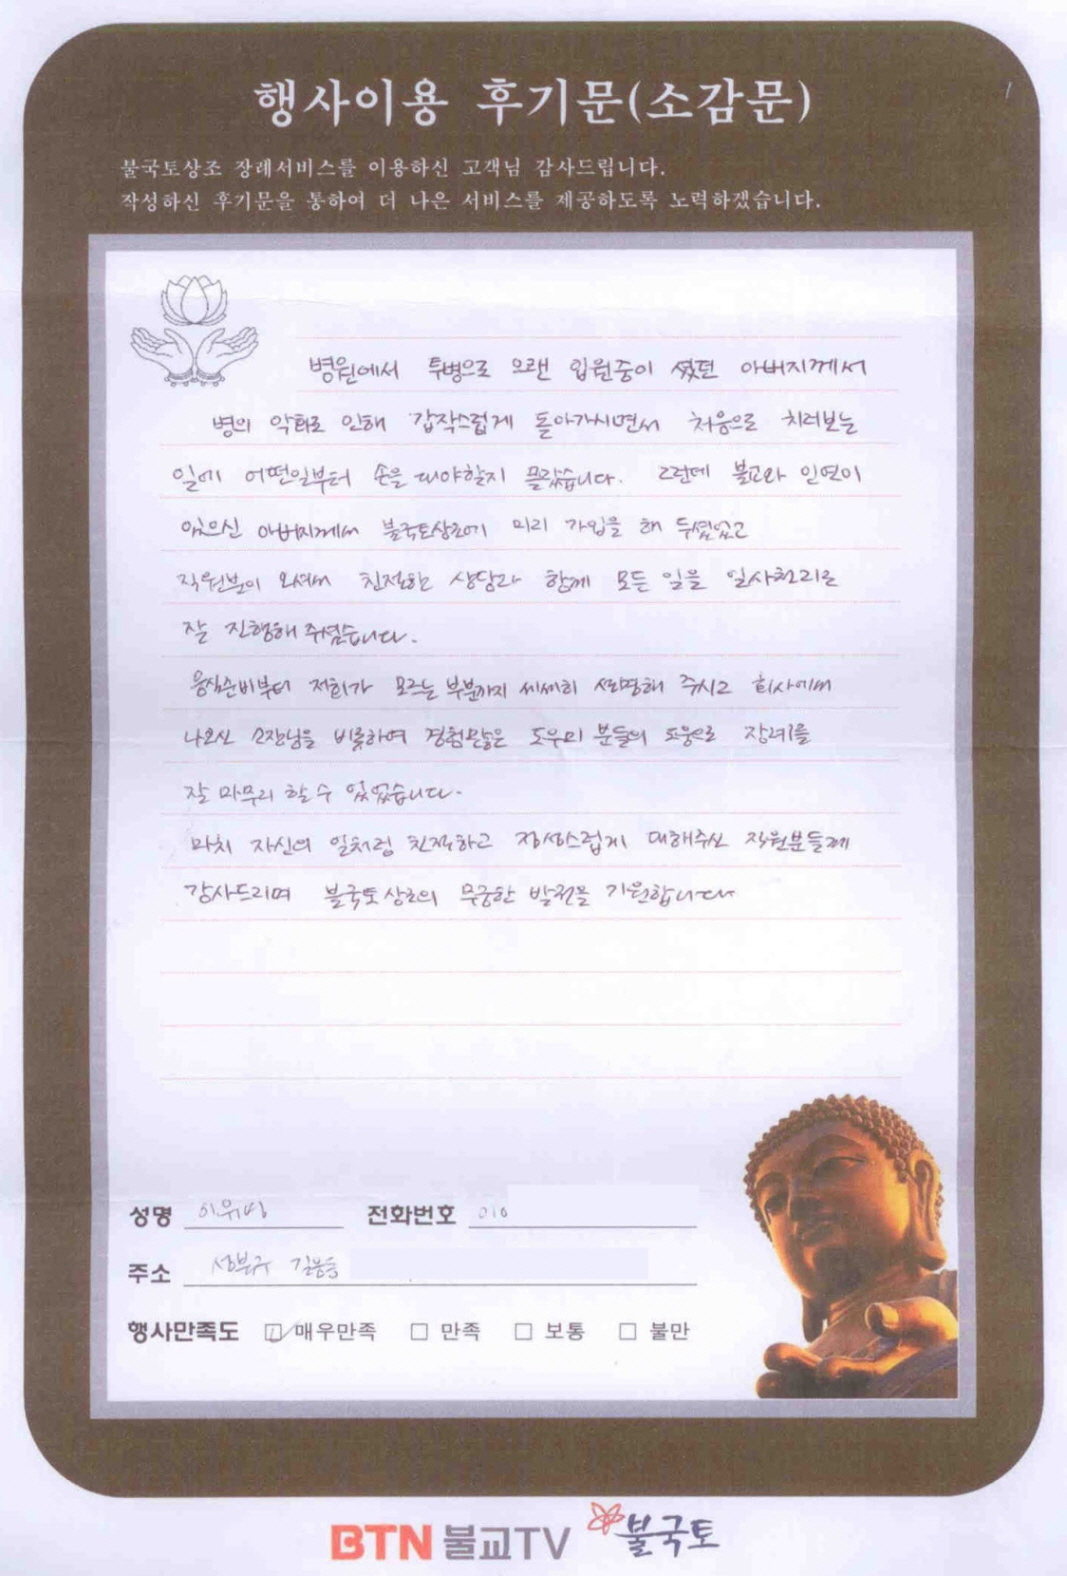 행사이용 후기문(소감문)
불국토상조 장례서비스를 이용하신 고객님 감사드립니다.
작성하신 후기문을 통하여 더 나은 서비스를 제공하도록 노력하겠습니다.
병원에서 투병으로 오랜 입원중이 셨던 아버지께서
병의 악화로 인해 갑작스럽게 돌아가시면서 처음으로 치러보는
일에 어떤일부터 손을 대야할지 몰랐습니다. 그런데 불교와 인연이
있으신 아버지께서 불국토상조에 미리 가입을 해 두셨었고
직원분이 오셔서 친절한 상담과 함께 모든 일을 일사천리로
잘 진행해 주셨습니다.
음식준비부터 저희가 모르는 부분까지 세세히 설명해 주시고 회사에서
나오신 소장님을 비롯하여 경험많은 도우미 분들의 도움으로 장례를
잘 마무리 할 수 있었습니다.
마치 자신의 일처럼 친절하고 정성스럽게 대해주신 직원분들께
감사드리며 불국토 상조의 무궁한 발전을 기원합니다
성명 전화번호 010
주소 성북구 길음동
행사만족도 매우만족 만족 보통 불만
BTN 불교TV 불국토